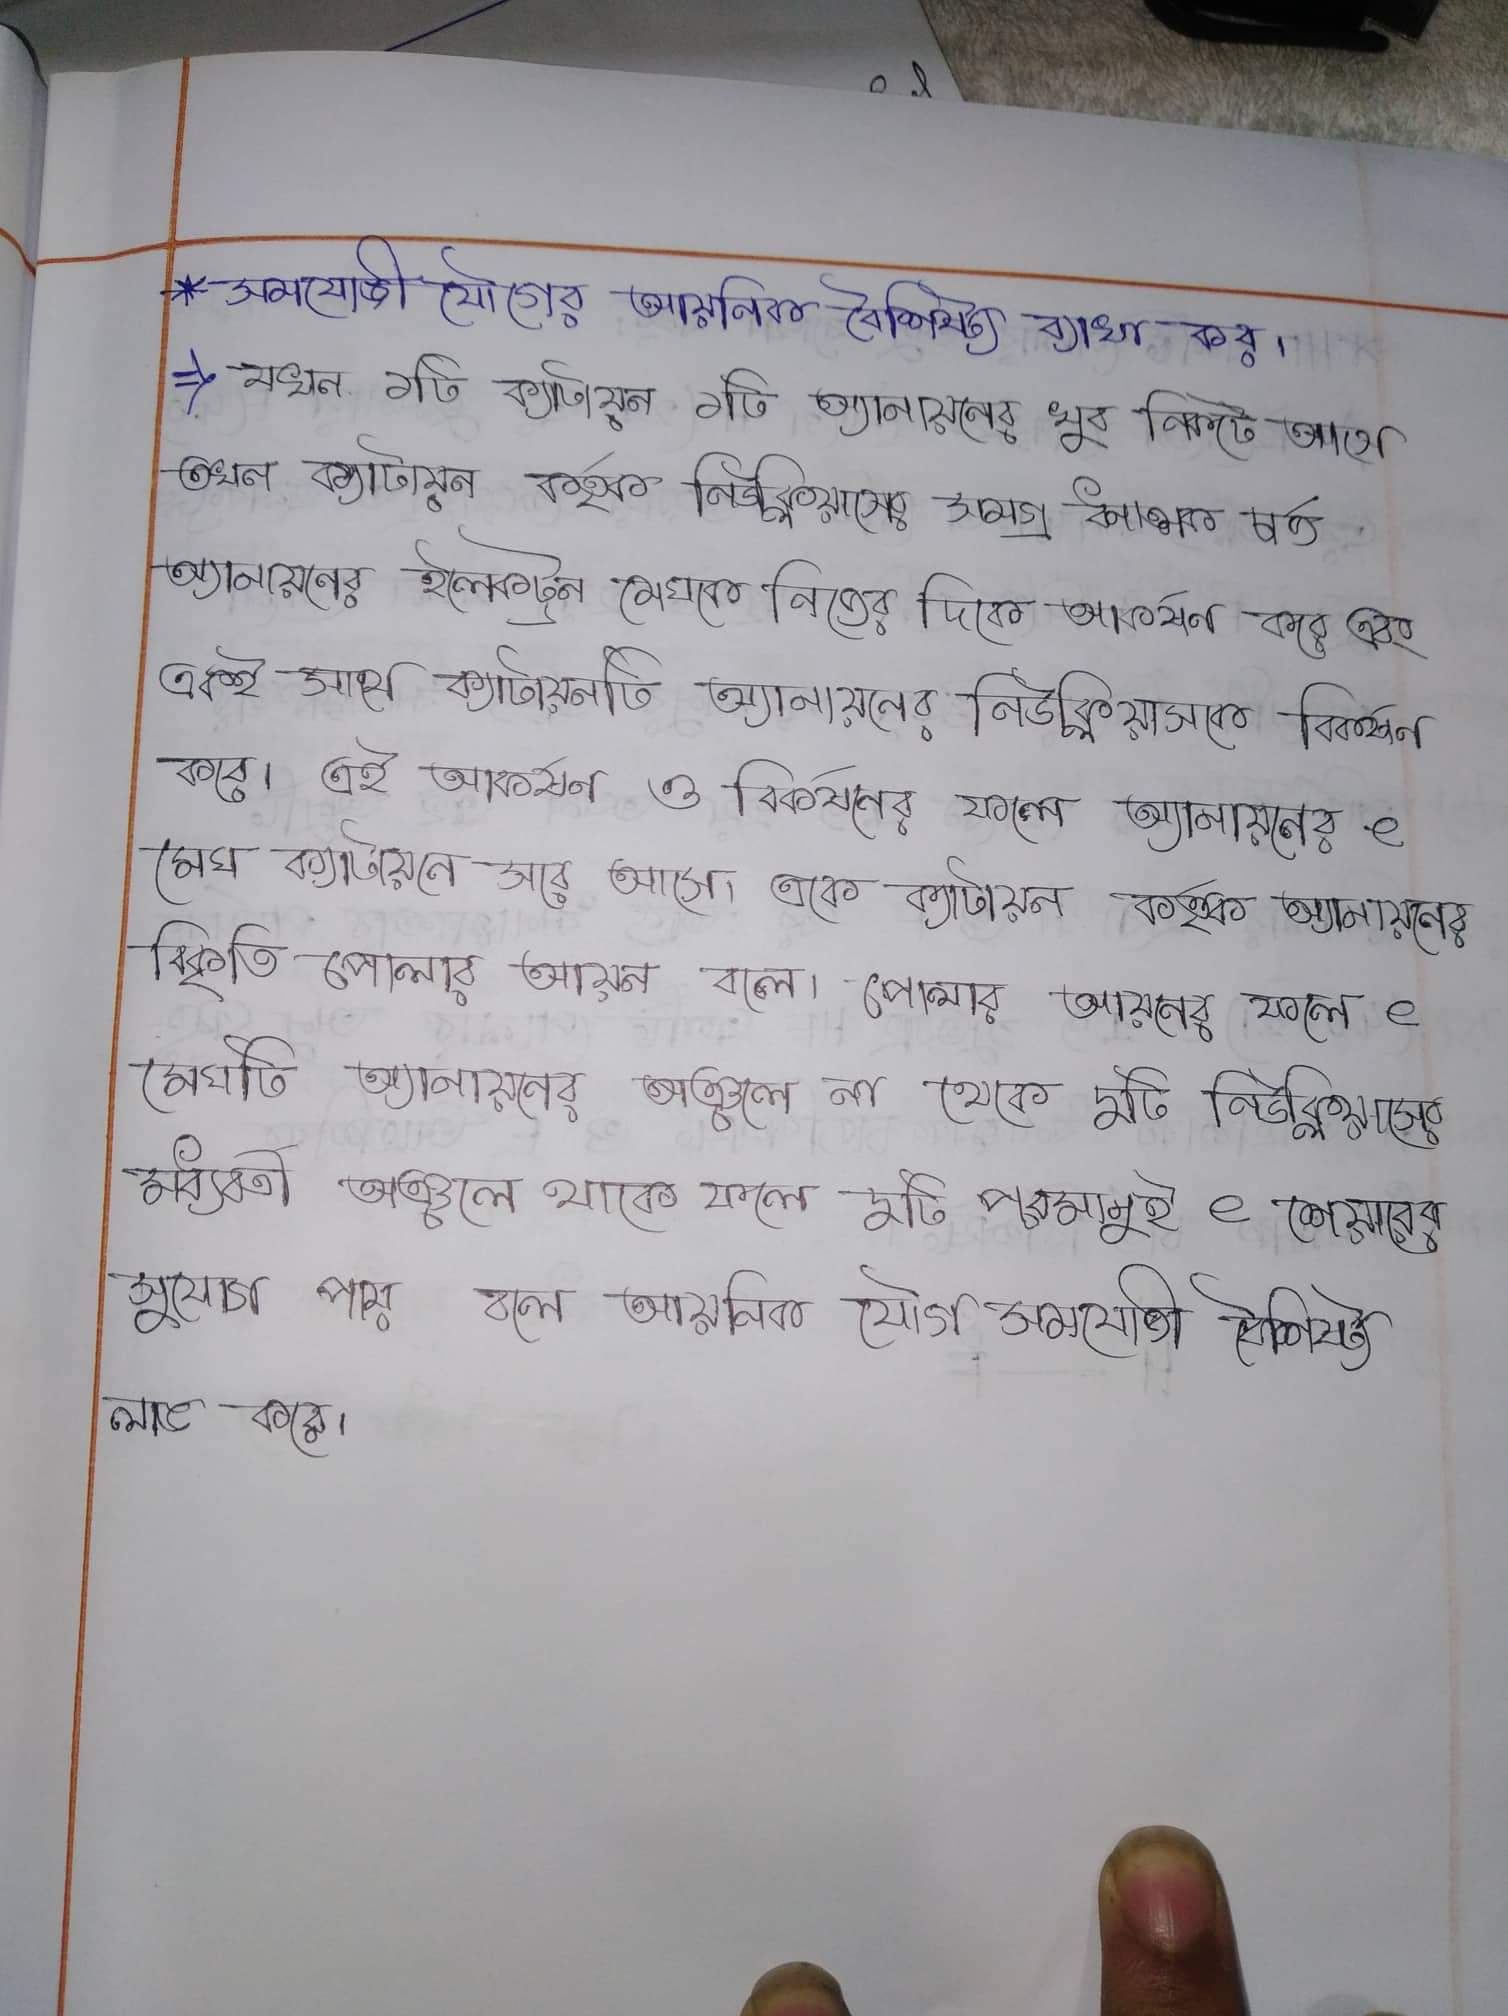 * সমযোজী যৌগের আয়নিক বৈশিষ্ট্য ব্যাখা কর।
⇒ যখন ১টি ক্যাটায়ন ১টি অ্যানায়নের খুব নিকটে আসে
তখন ক্যাটায়ন কর্তৃক নিউক্লিয়াসের সমগ্র
অ্যানায়নের ইলেকট্রন মেঘকে নিজের দিকে আকর্ষন করে এবং
একই সাথে ক্যাটায়নটি অ্যানায়নের নিউক্লিয়াসকে বিকর্ষন
করে। এই আকর্ষন ও বিকর্ষনের ফলে অ্যানায়নের e
মেঘ ক্যাটায়নে সরে আসে। একে ক্যাটায়ন কর্তৃক অ্যানায়নের
বিকৃতি পোলার আয়ন বলে। পোলার আয়নের ফলে e
মেঘটি অ্যানায়নের অঞ্চলে না থেকে দুটি নিউক্লিয়াসের
মধ্যবর্তী অঞ্চলে থাকে ফলে দুটি পরমানুই e শেয়ারের
সুযোগ পায় বলে আয়নিক যৌগ সমযোজী বৈশিষ্ট্য
লাভ করে।